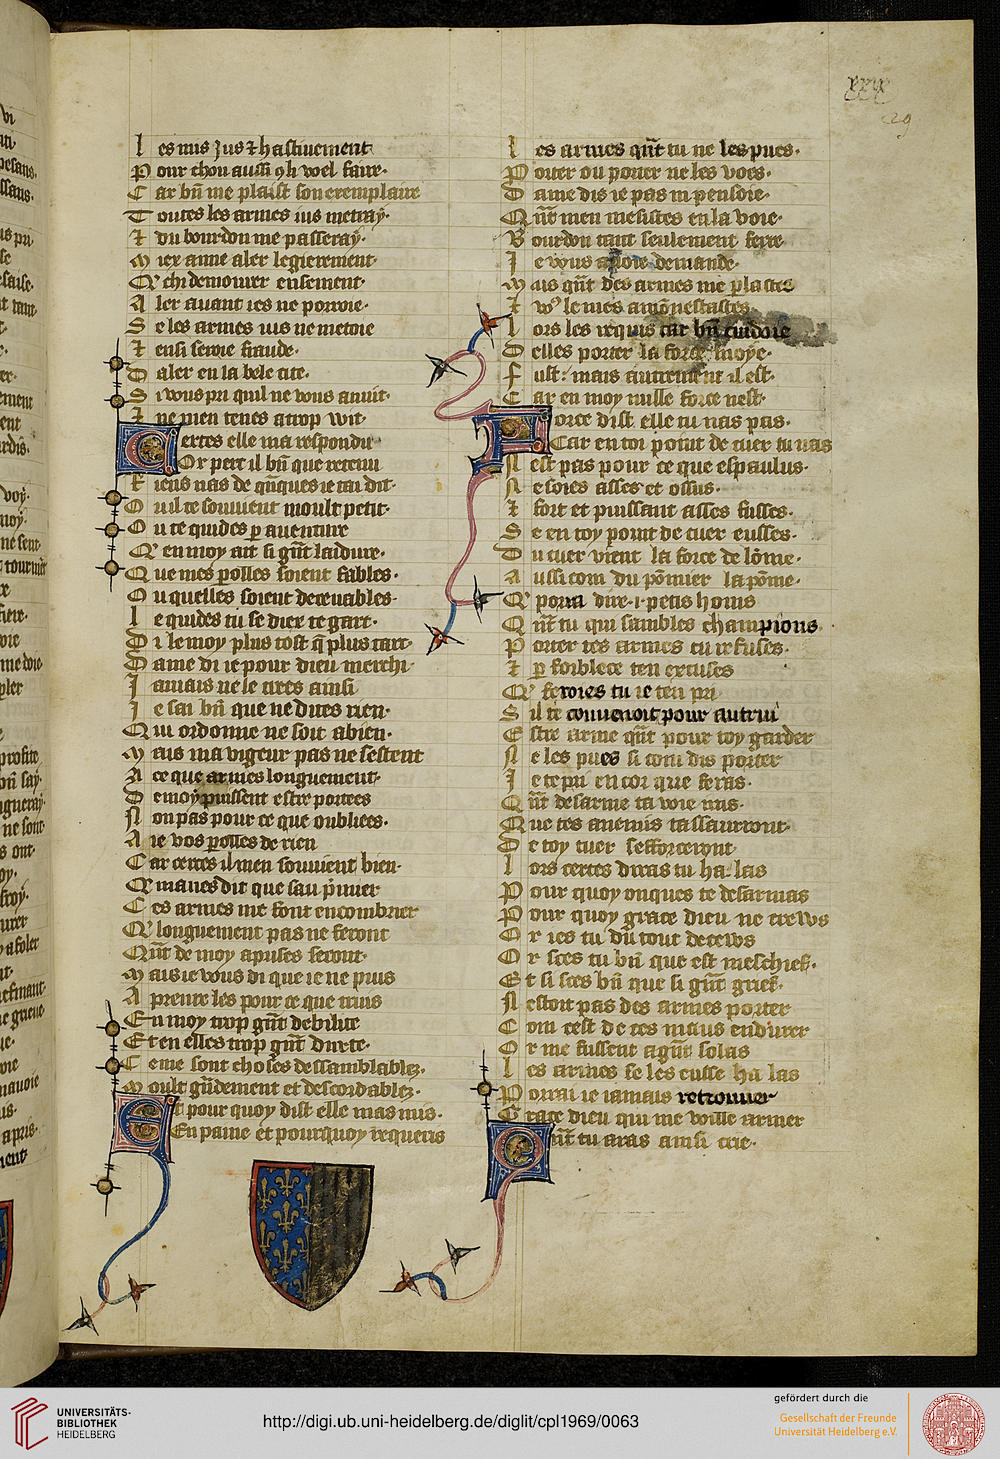 xxix
29
Les mis jus ⁊ hastiuement
Pour chou aussi ꝯ h voel faire·
Car bn̄ me plaist son exemplaire
Toutes les armes ius metray·
⁊ du bourdon me passeray·
Miex aime aler legierement·
Q̄ chi demourer ensement·
Aler auant ies ne porroie·
Se les armes ius ne metoie
⁊ ensi seroie fraude·
Daler en la bele cite·
Si vous pri quil ne vous anuit·
⁊ ne men tenes a trop wit·
Certes elle ma respondu
Or pert il bn̄ que retenu
Riens nas de qn̄ques ie tai dit·
Ou il te souuient moult petit·
Ou te quides p auenture
Q̄ en moy ait si gn̄t laidure·
Que mes polles soient fables·
Ou quelles soient deceuables·
Le quides tu se diex te gart·
Di le moy plus tost q̄ plus tart·
Dame di ie pour dieu merchi
Jamais ne le cires ainsi
Je sai bn̄ que ne dites rien·
Qui ordonne ne soit a bien·
Mais ma vigeur pas ne sestent
A ce que armes longuement·
De moy puissent estre portees
Non pas pour ce que oubliees·
Aie vos polles de rien
Car certes il men souuient bien·
Q̄ maues dit que sau pmier
Ces armes me font encombrier
Q̄ longuement pas ne feront
Qn̄t de moy apuses seront·
Mais ie vous di que ie ne puis
Apenre les pour ce que truis
En moy trop gn̄t debilite
Et en elles trop gn̄t durte·
Ceme sont choses dessamblablez·
Moult gn̄dement et descordablez·
Et pour quoy dist elle mas mis·
En paine et pourquoy requeris
Les armes qn̄t tu ne les pues·
Porter ou porter ne les voes·
Dame dis ie pas ni pensoie·
Qn̄t men mesistes en la voie·
Bourdon tant seulement ferre
Je vous auoie demande·
Mais qn̄t des armes me plastes
⁊ wꝰ le mes amōnestastes·
Lors les requis car bn̄ cuidoie
Delles porter la force moye·
Fust: mais autrement il est·
Car en moy nulle force nest·
Force dist elle tu nas pas·
Car en toi point de cuer tu nas
Nest pas pour ce que espaulus·
Ne soies asses et ossus·
⁊ fort et puissant asses fusses·
Se en toy point de cuer eusses·
Du cuer vient la force de lōme·
Aussi com du pōmier la pōme·
Q̄ porra dire ·i· petis homs
Qn̄t tu qui sambles champions·
Porter tes armes tu refuses·
⁊ p foiblece ten excuses
Q̄ feroies tu ie ten pri
Sil te conuenoit pour autrui
Estre arme qn̄t pour toy garder
Ne les pues si com dis porter
Je te pri encor que feras·
Qn̄t desarme ta voie iras·
Que tes anemis tassaurront·
De toy tuer sefforceront·
Lors certes diras tu ha las
Pour quoy onques te desarmas
Pour quoy grace dieu ne crews
Or ies tu du tout decews
Or sces tu bn̄ que est meschief·
Et si sces bn̄ que si gn̄t grief·
Nestoit pas des armes porter
Com cest de ces maus endurer
Or me fussent a gn̄t solas
Les armes se les eusse ha las
Porrai ie iamais retrouuer
Grace dieu qui me voille armer
Qn̄t tu aras ainsi crie·
UNIVERSITÄTS-
BIBLIOTHEK
HEIDELBERG
http://digi.ub.uni-heidelberg.de/diglit/cpl1969/0063
gefördert durch die
Gesellschaft der Freunde
Universität Heidelberg e.V.